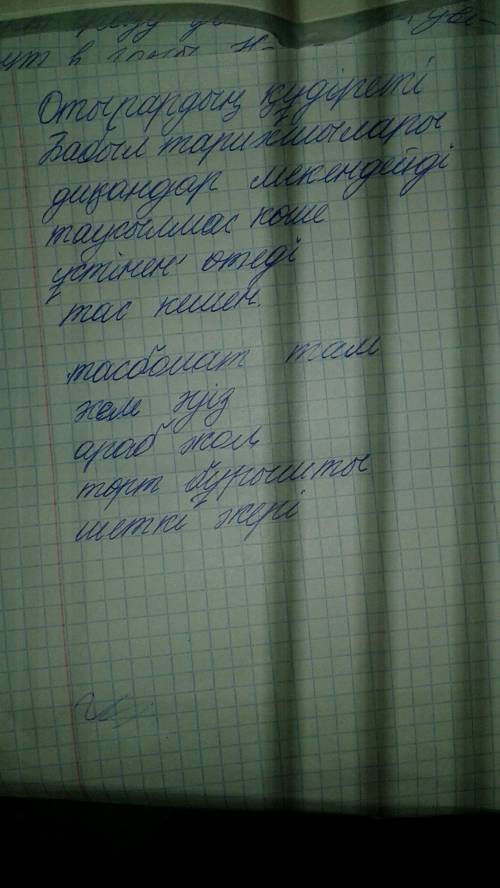 Отырардың құдіреті
Вавыл тарихшылары
диқандар мекендейді
таусылмас коше
үстінен отеді
тас кешен.
тасбомат там
араб жол,
торт бұрышты
шеткі жері